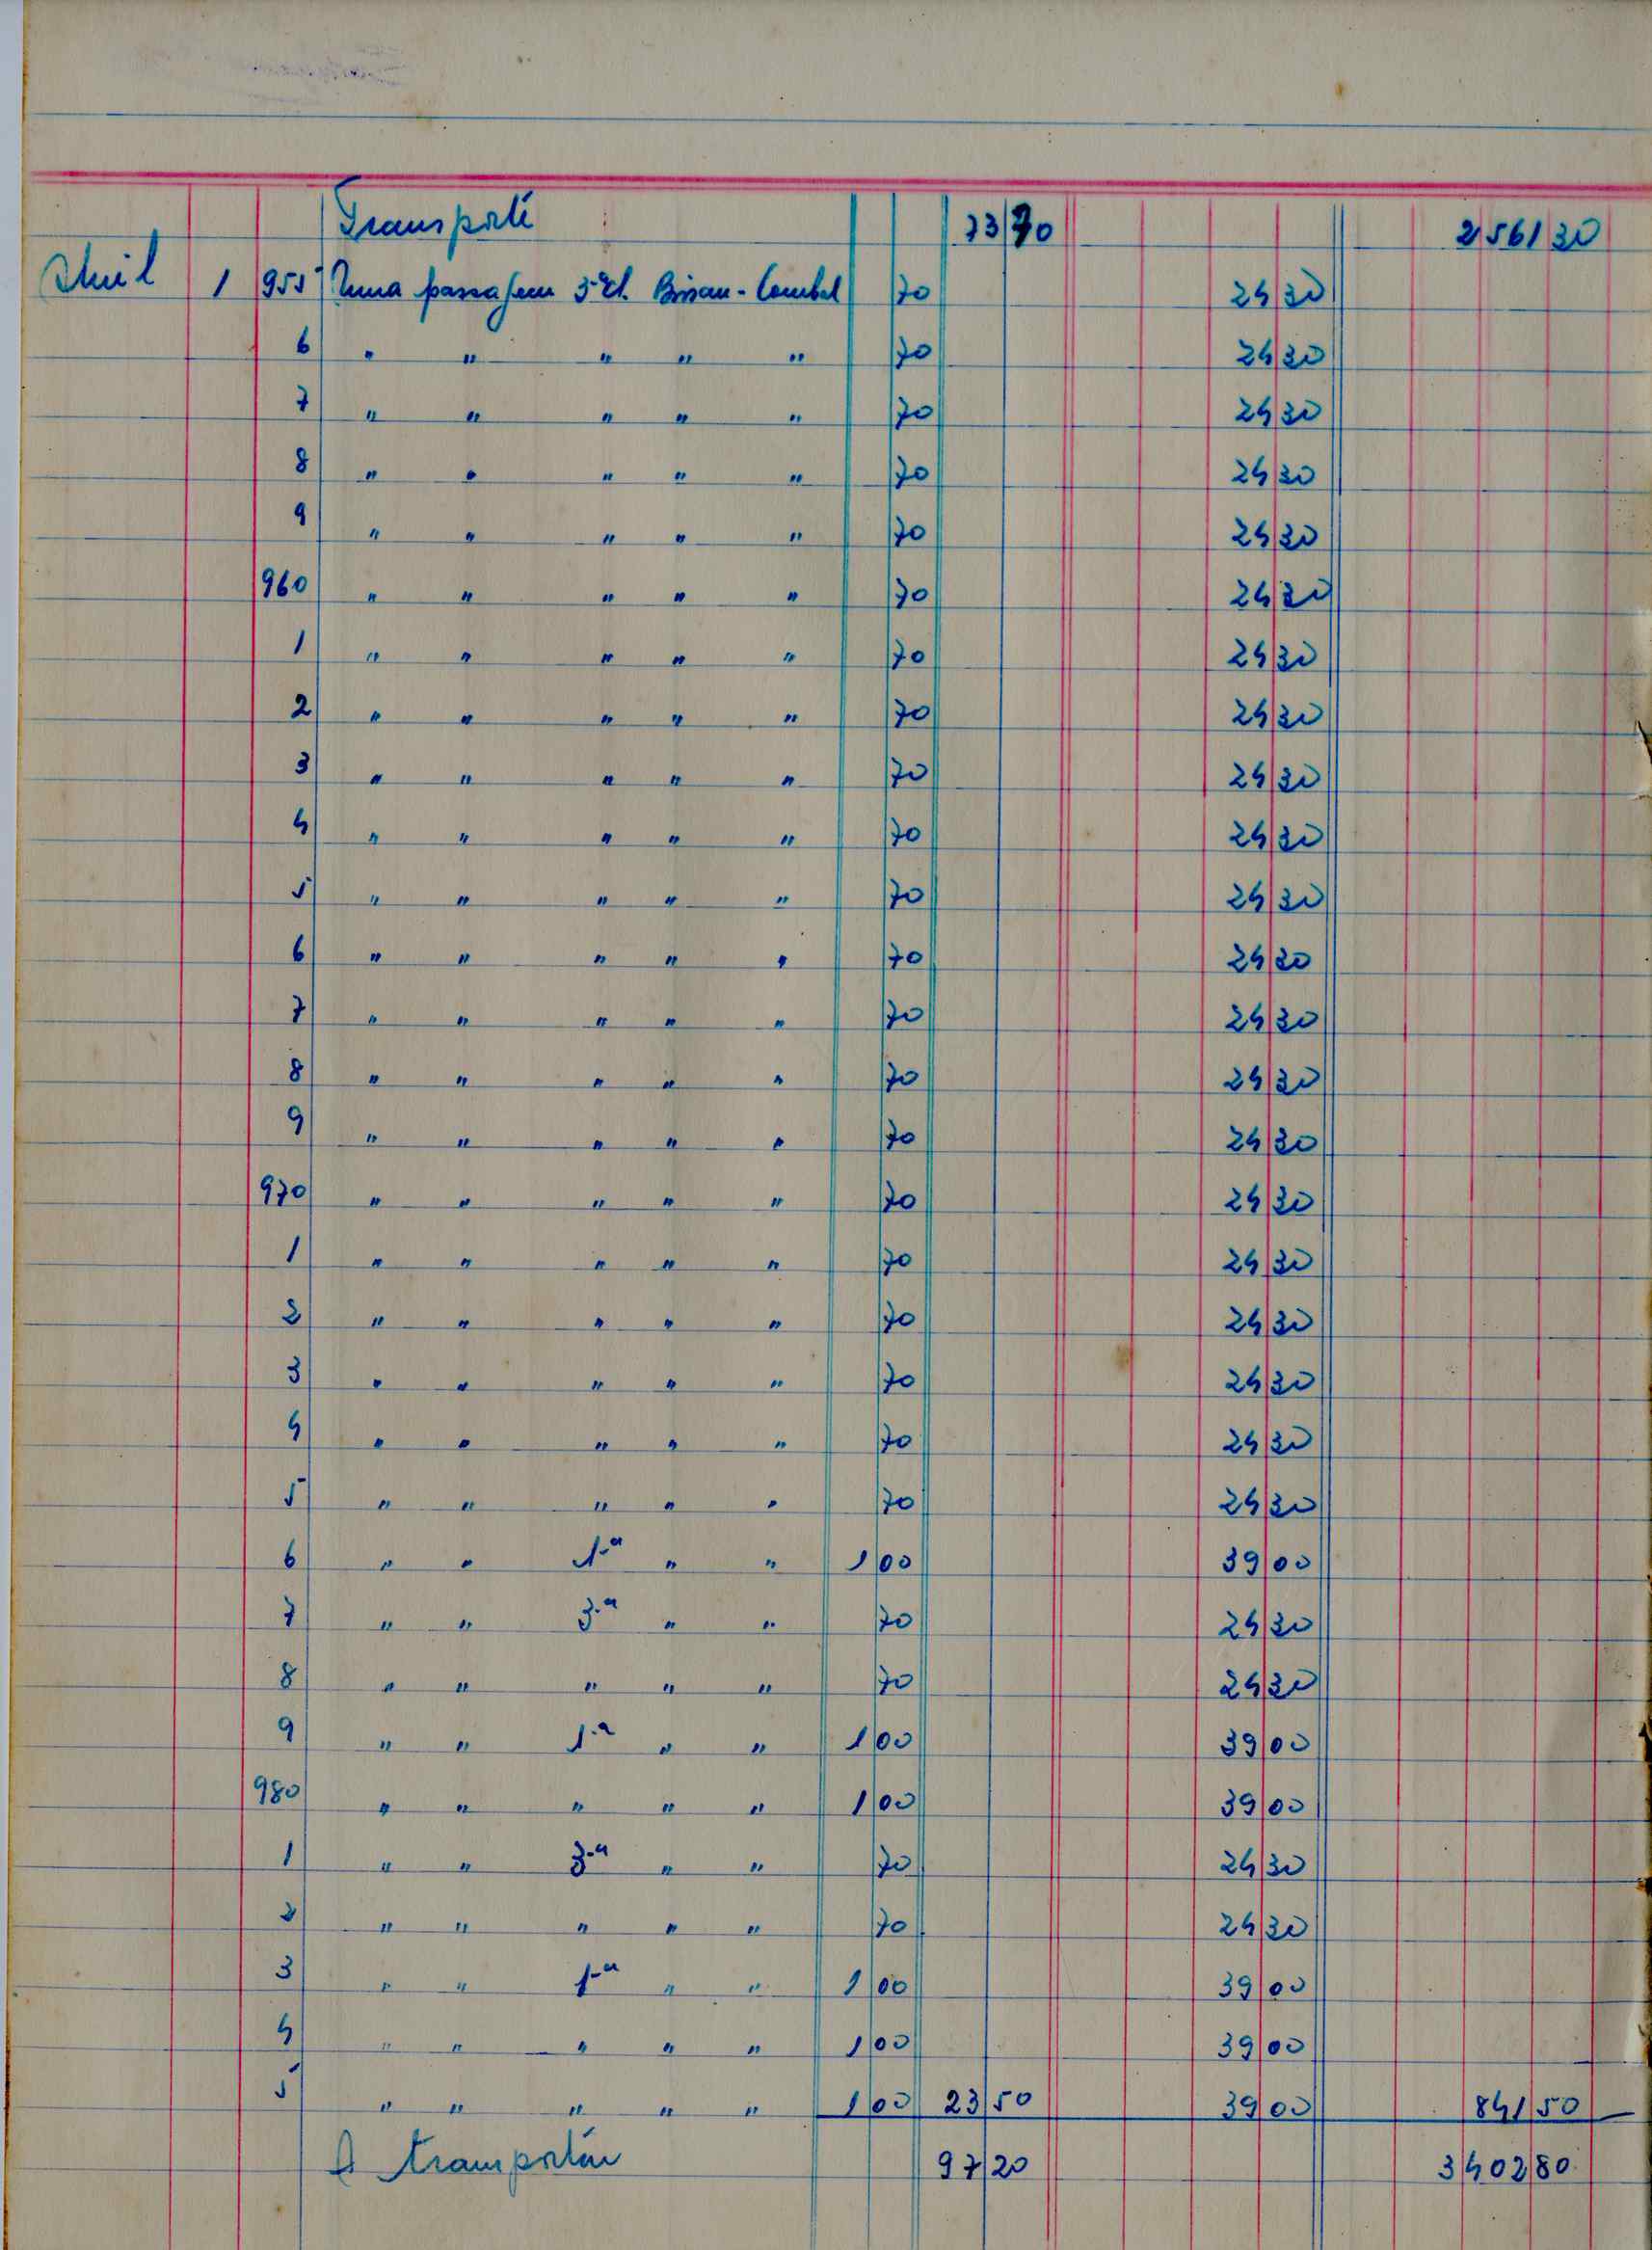 Transporte 73 70 2 561 30
Abril 1 955 Uma passagem 3ª cl. Bissau - 70 24 30
6 " " " " " 70 24 30
7 " " " " " 70 24 30
8 " " " " " 70 24 30
9 " " " " " 70 24 30
960 " " " " " 70 24 30
1 " " " " " 70 24 30
2 " " " " " 70 24 30
3 " " " " " 70 24 30
4 " " " " " 70 24 30
5 " " " " " 70 24 30
6 " " " " " 70 24 30
7 " " " " " 70 24 30
8 " " " " " 70 24 30
9 " " " " " 70 24 30
970 " " " " " 70 24 30
1 " " " " " 70 24 30
2 " " " " " 70 24 30
3 " " " " " 70 24 30
4 " " " " " 70 24 30
5 " " " " " 70 24 30
6 " " 1.ª " " 1 00 39 00
7 " " 3.ª " " 70 24 30
8 " " " " " 70 24 30
9 " " 1.ª " " 1 00 39 00
980 " " " " " 1 00 39 00
1 " " 3.ª " " 70 24 30
2 " " " " " 70 24 30
3 " " 1.ª " " 1 00 39 00
4 " " " " " 1 00 39 00
5 " " " " " 1 00 23 50 39 00 841 50
A transportar 97 20 3 402 80